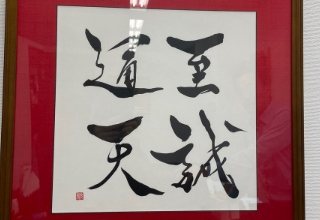 至誠
通天